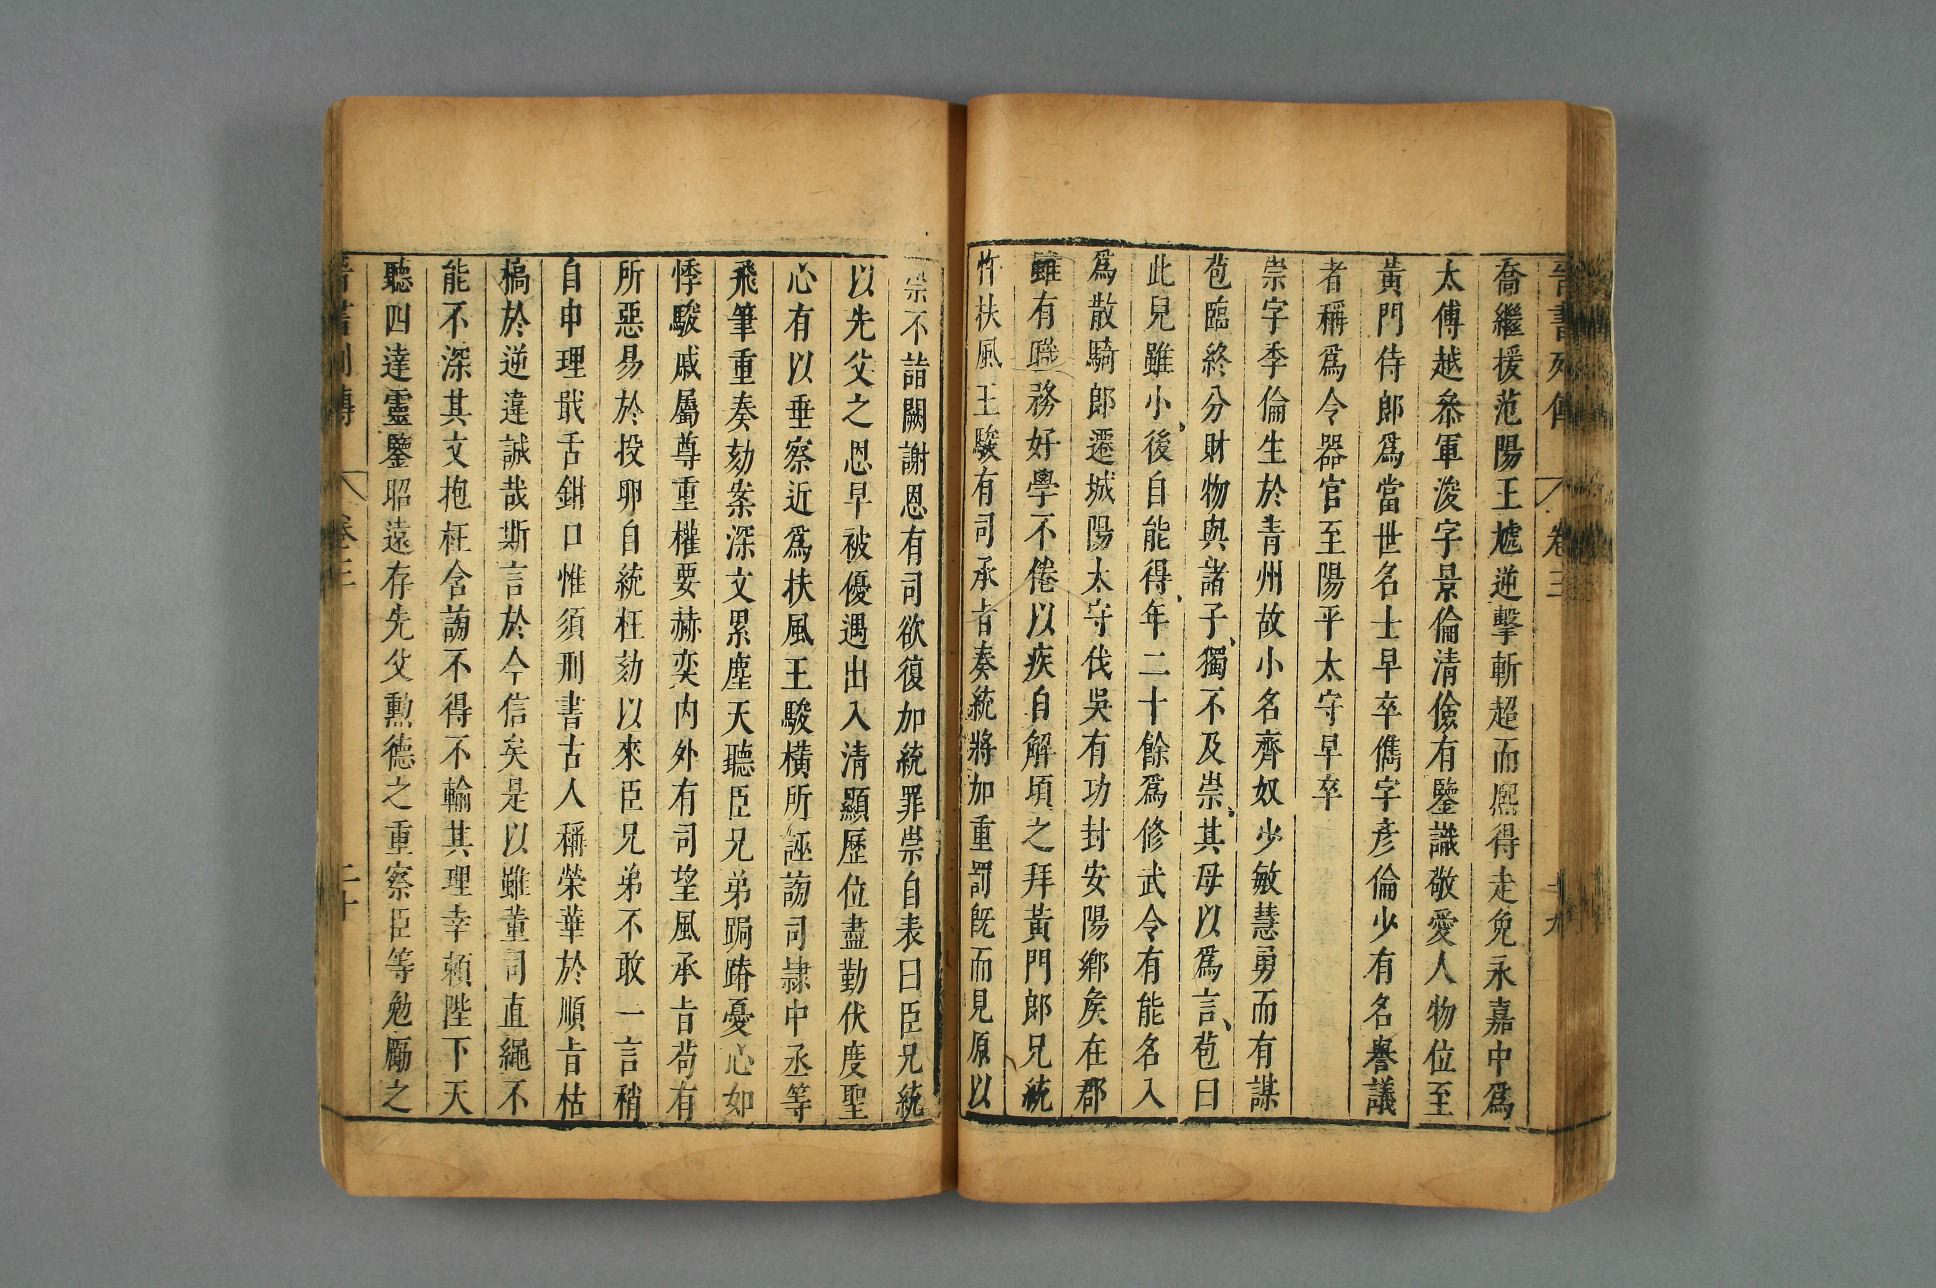 晉書列傳 卷三 十九
喬繼援范陽王虓逆擊斬超而熈得走免永嘉中爲
太傅越叅軍浚字景倫清儉有鑒識敬愛人物位至
黃門侍郎爲當世名士早卒儁字彥倫少有名譽議
者稱爲令器官至陽平太守早卒
崇字季倫生於青州故小名齊奴少敏慧勇而有謀
苞臨終分財物與諸子、獨不及崇、其母以爲言、苞曰
此兒雖小、後自能得、年二十餘爲修武令有能名入
爲散騎郎遷城陽太守伐吳有功封安陽鄉矦在郡
雖有職務好學不倦以疾自解頃之拜黃門郎兄統
忤扶風王駿有司承㫖奏統將加重罰旣而見原以
崇不詣闕謝恩有司欲復加統罪崇自表曰臣兄統
以先父之恩早被優遇出入清顯歷位盡勤伏度聖
心有以垂察近爲扶風王駿橫所誣謗司隷中丞等
飛筆重奏劾案深文累塵天聽臣兄弟跼蹐憂心如
悸駿戚屬尊重權要赫奕内外有司望風承㫖苟有
所惡易於投卵自統枉劾以來臣兄弟不敢一言稍
自申理戢舌鉗口惟須刑書古人稱榮華於順㫖枯
槁於逆違誠哉斯言於今信矣是以雖董司直繩不
能不深其文抱枉含謗不得不輸其理幸頼陛下天
聽四達靈鑒昭遠存先父勲德之重察臣等勉厲之
晉書列傳 卷三 二十